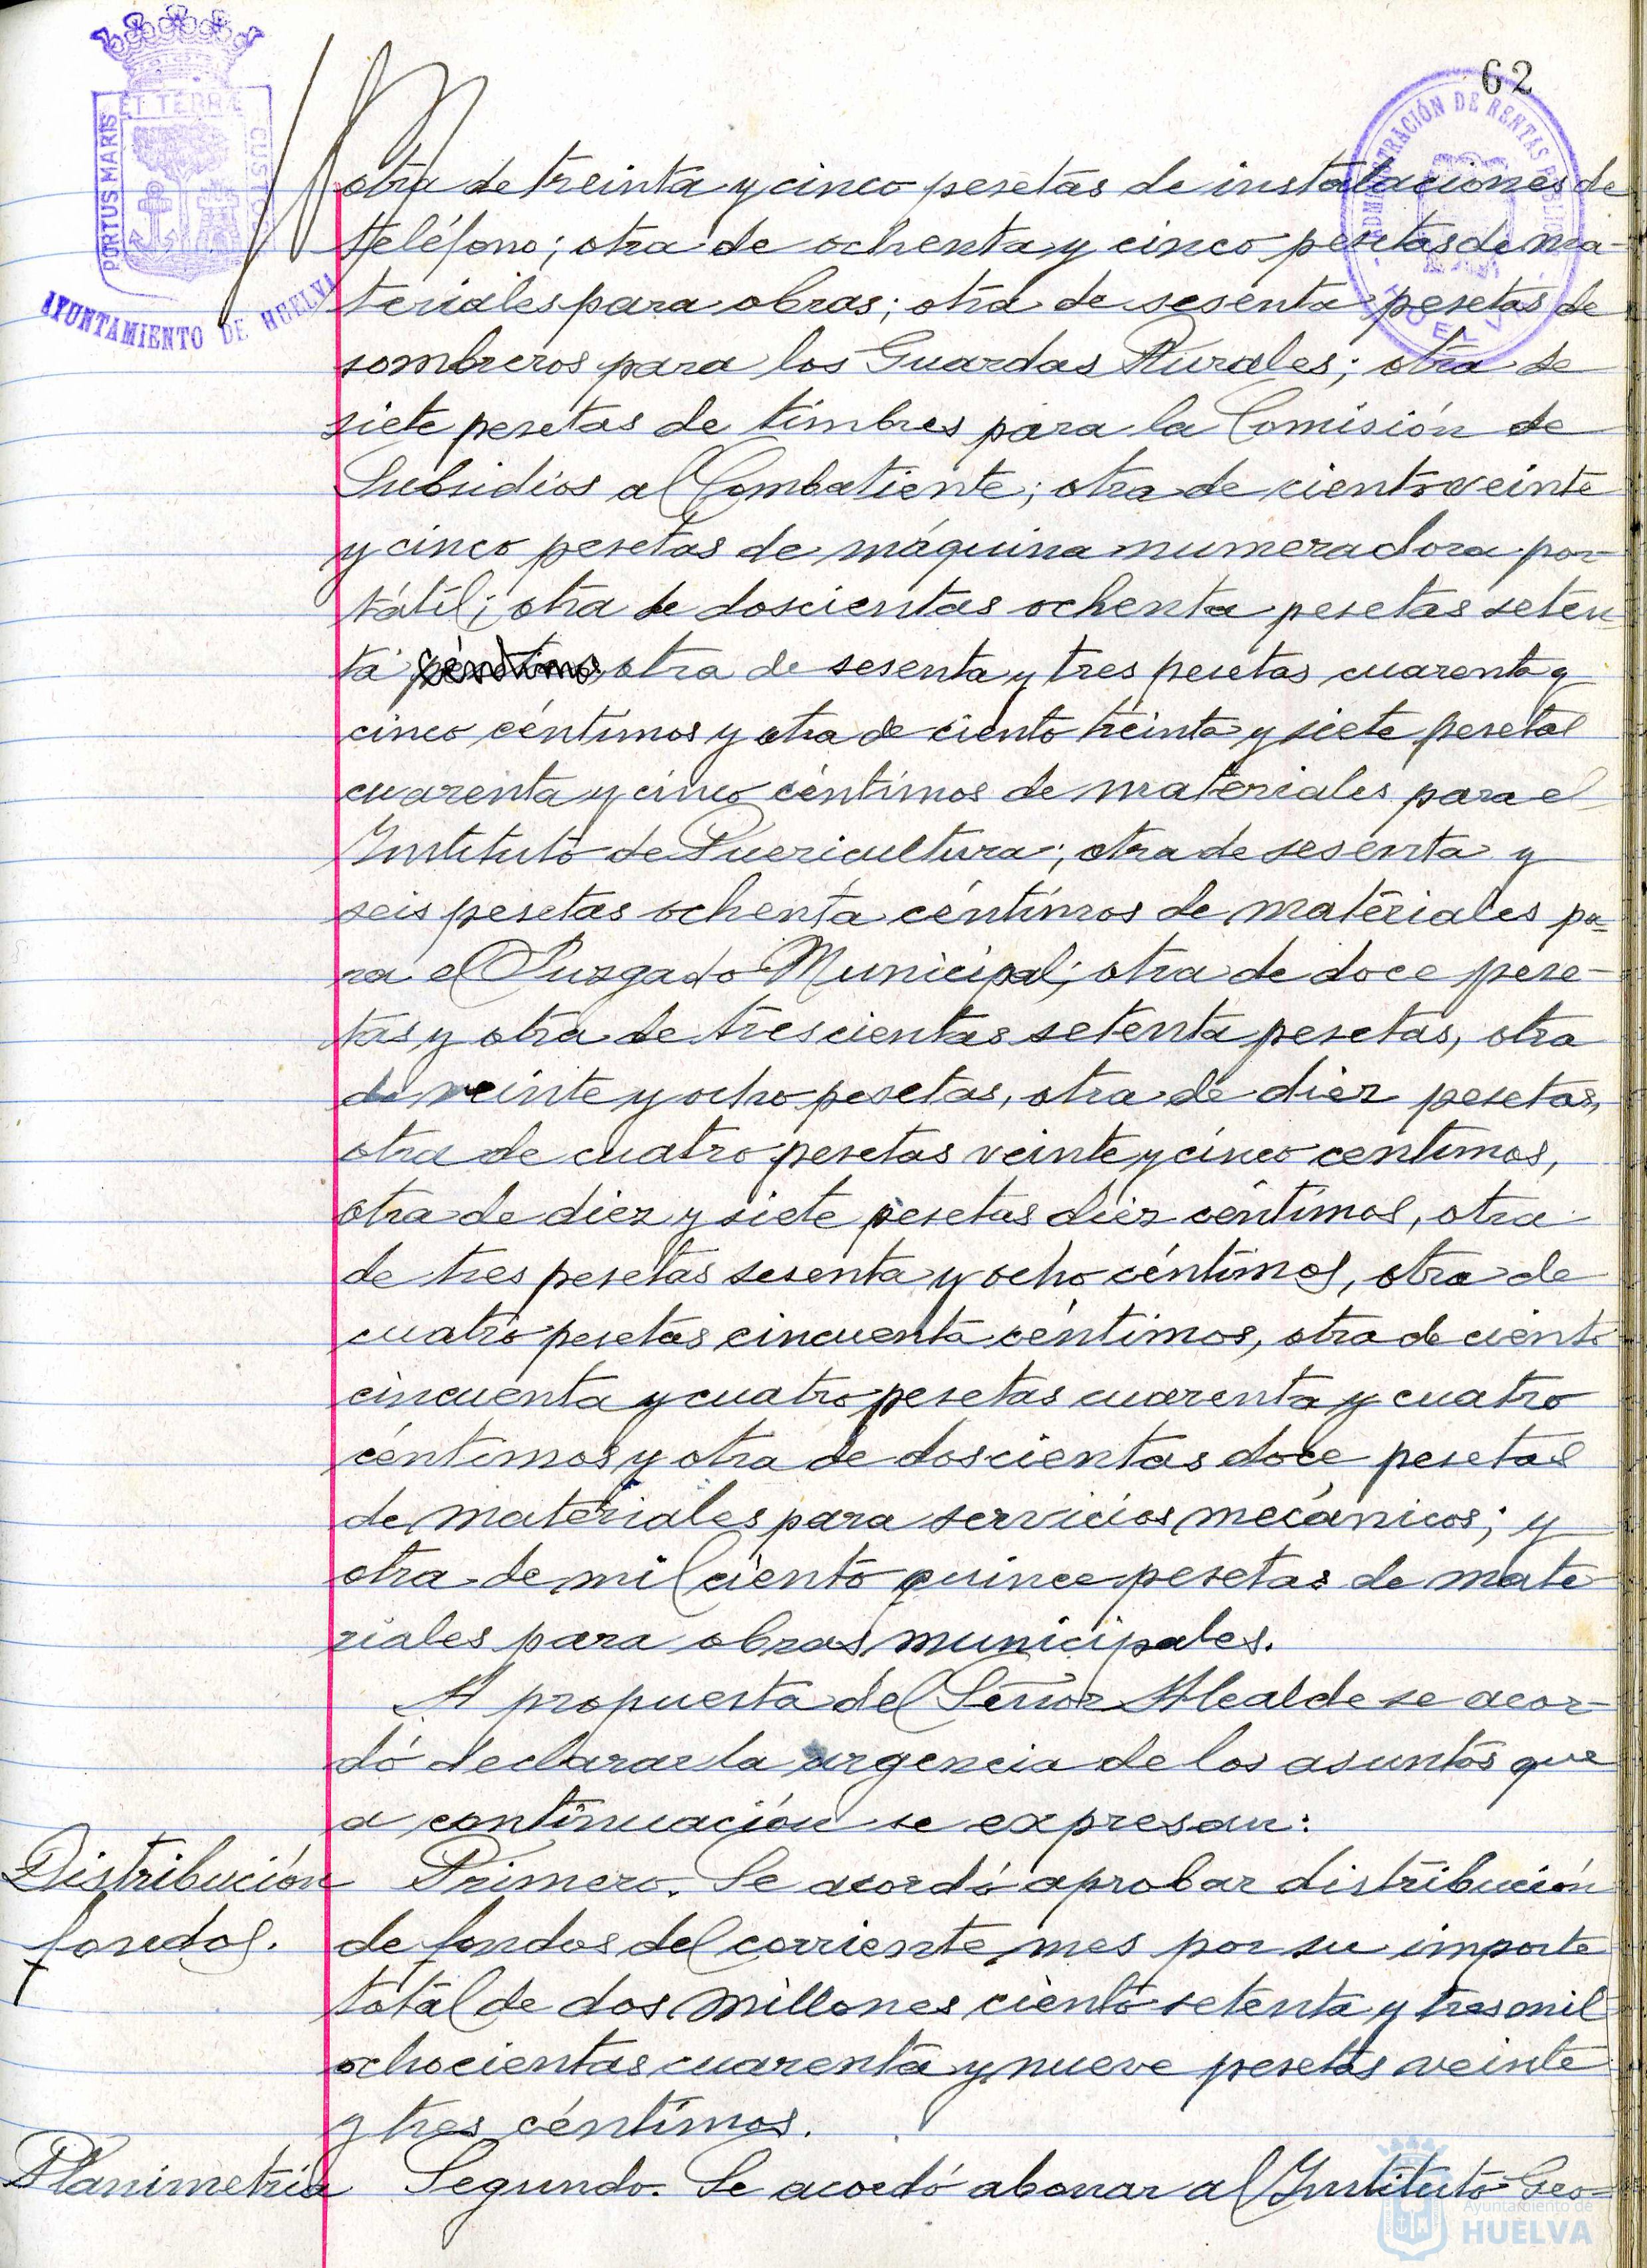 62
PORTUS MARIS
ET TERRÆ
CUSTOD
AYUNTAMIENTO DE HUELVA
ADMINISTRACIÓN DE RENTAS PÚBLICAS
HUELVA
otra de treinta y cinco pesetas de instalaciones de
teléfono; otra de ochenta y cinco pesetas de ma-
teriales para obras; otra de sesenta pesetas de
sombreros para los Guardas Rurales; otra de
siete pesetas de timbres para la Comisión de
Subsidios al Combatiente; otra de ciento veinte
y cinco pesetas de máquina numeradora por-
tátil; otra de doscientas ochenta pesetas seten-
ta céntimos otra de sesenta y tres pesetas cuarenta y
cinco céntimos y otra de ciento treinta y siete pesetas
cuarenta y cinco céntimos de materiales para el
Instituto de Puericultura; otra de sesenta y
seis pesetas ochenta céntimos de materiales pa-
ra el Juzgado Municipal; otra de doce pese-
tas y otra de trescientas setenta pesetas, otra
de veinte y ocho pesetas, otra de diez pesetas,
otra de cuatro pesetas veinte y cinco centimos,
otra de diez y siete pesetas diez céntimos, otra
de tres pesetas sesenta y ocho céntimos, otra de
cuatro pesetas cincuenta céntimos, otra de ciento
cincuenta y cuatro pesetas cuarenta y cuatro
céntimos y otra de doscientas doce pesetas
de materiales para servicios mecánicos; y
otra de mil ciento quince pesetas de mate-
riales para obras municipales.
A propuesta del Señor Alcalde se acor-
dó declarar la urgencia de los asuntos que
a continuación se expresan:
Distribución
fondos.
Primero. Se acordó aprobar distribución
de fondos del corriente mes por su importe
total de dos millones ciento setenta y tres mil
ochocientas cuarenta y nueve pesetas veinte
y tres céntimos.
Planimetría
Segundo. Se acordó abonar al Instituto Geo-
Ayuntamiento de
HUELVA